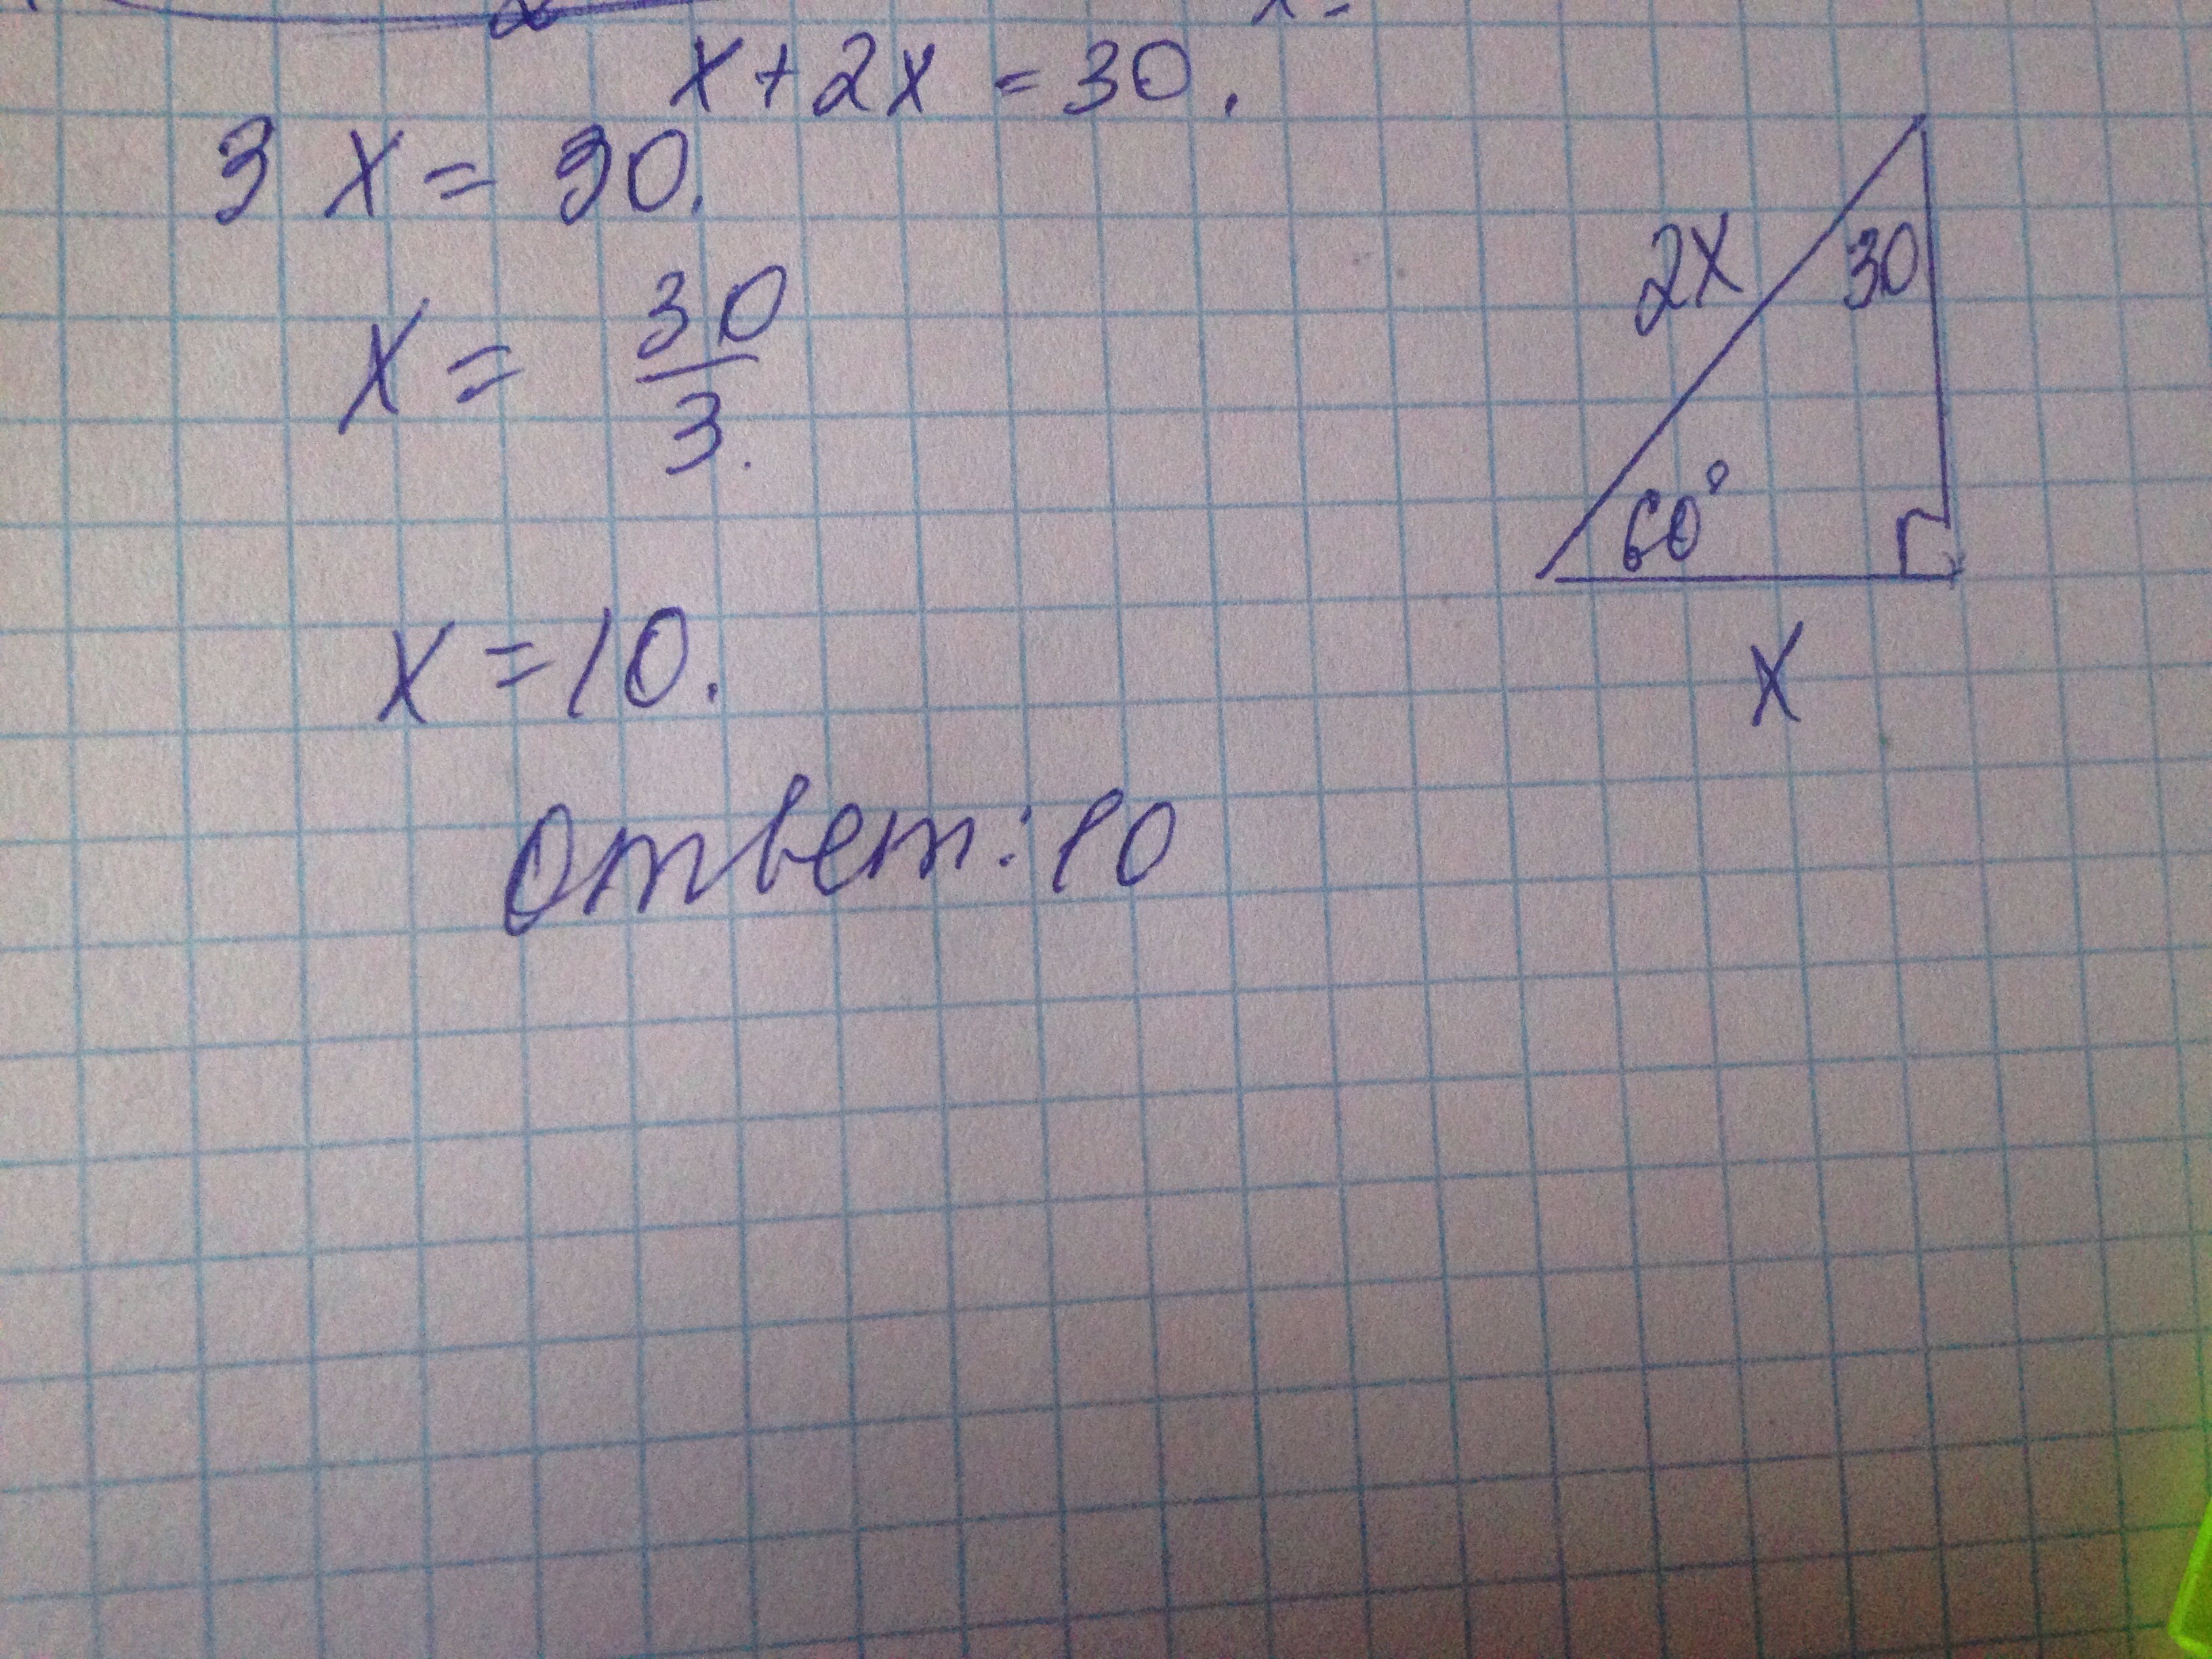 x+2x = 30.
3 x = 30.
x = 30/3.
x = 10.
Ответ: 10
2x
30
60°
x